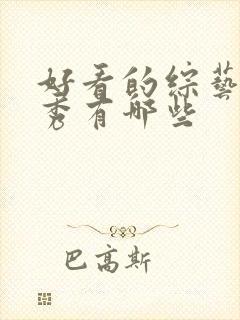 好看的综藝
秀有哪些
巴高斯